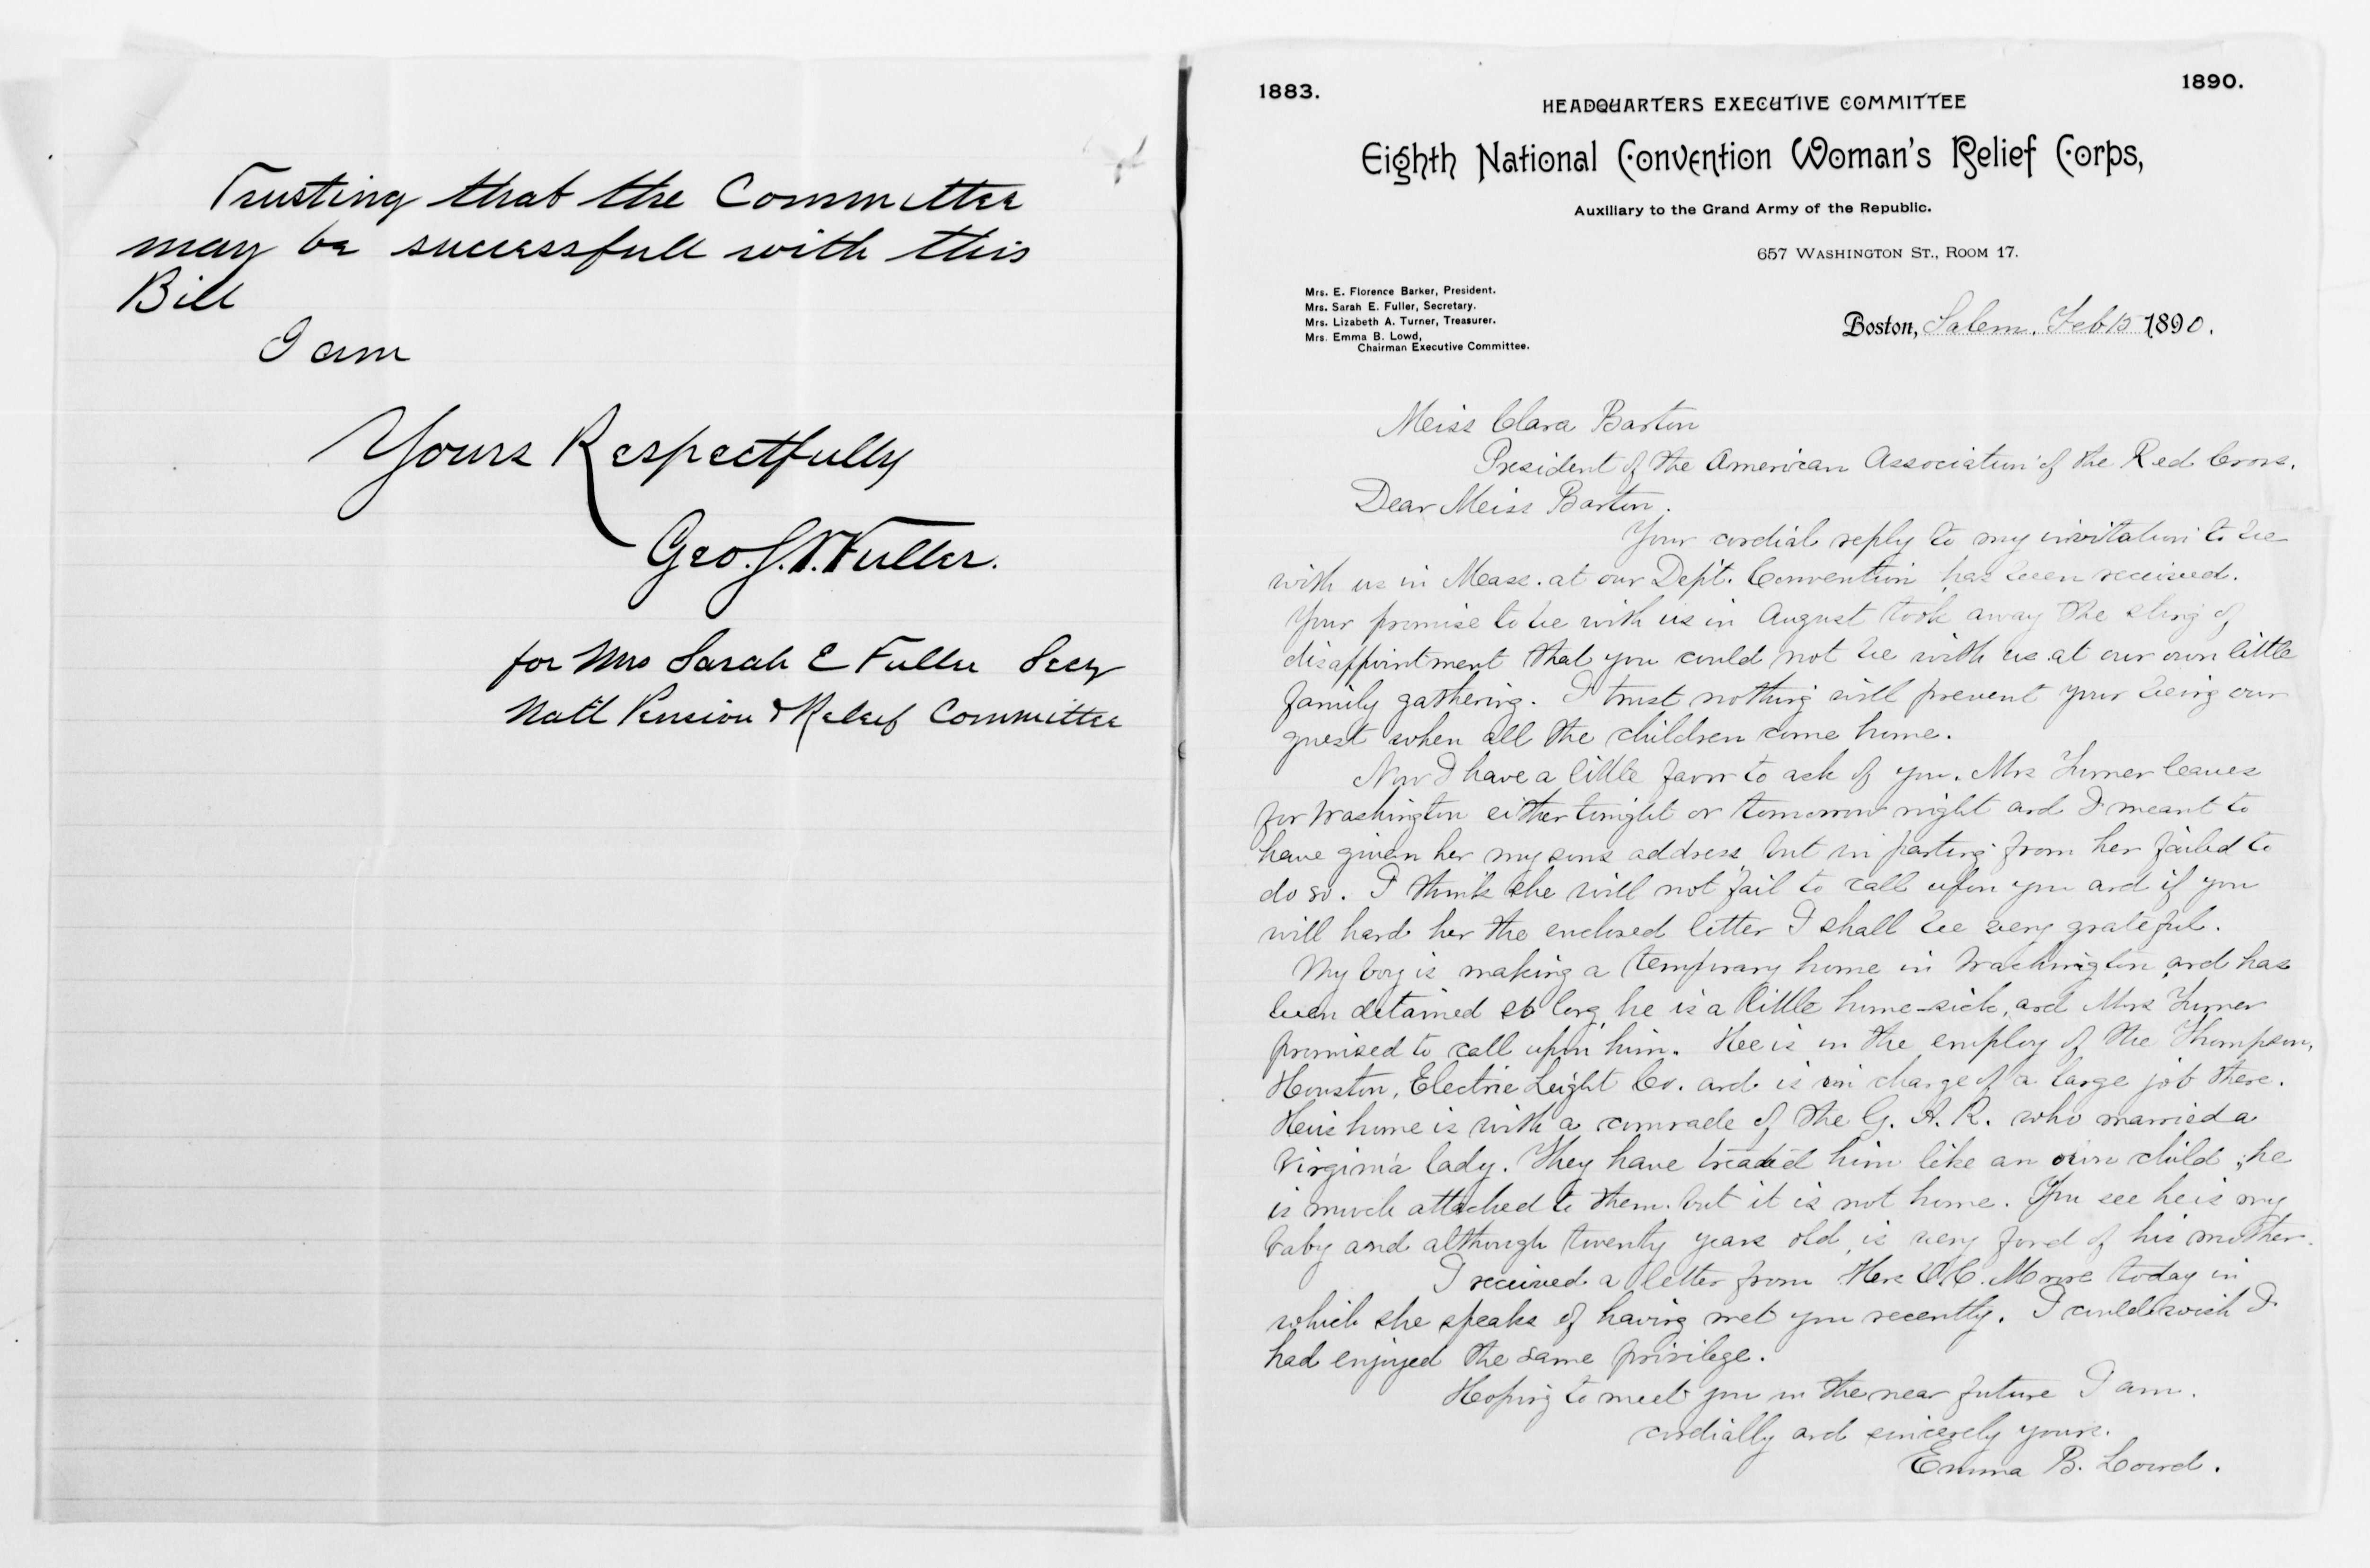 Trusting that the Committee
may be sucessfull with this
Bill
I am
Yours Respectfully
Geo. S. Fuller.
for Mrs Sarah E Fuller Secy
Nat'l Pension & Relief Committee
1883.
1890.
HEADQUARTERS EXECUTIVE COMMITTEE
Eighth National Convention Woman's Relief Corps,
Auxiliary to the Grand Army of the Republic.
657 WASHINGTON ST., ROOM 17.
Mrs. E. Florence Barker, President.
Mrs. Sarah E. Fuller, Secretary.
Mrs. Lizabeth A. Turner, Treasurer.
Mrs. Emma B. Lowd,
Chairman Executive Committee.
Boston, Salem, Feb 15 1890.
Miss Clara Barton
President of the American Association of the Red Cross.
Dear Miss Barton.
Your cordial reply to my invitation to be
with us in Mass. at our Dept. Convention has been received.
Your promise to be with us in August took away the sting of
disappointment that you could not be with us at our own little
family gathering. I trust nothing will prevent your being our
guest when all the children come home.
Now I have a little favor to ask of you. Mrs Turner leaves
for Washington either tonight or tomorrow night and I meant to
have given her my sons address but in parting from her failed to
do so. I think she will not fail to call upon you and if you
will hand her the enclosed letter I shall be very grateful.
My boy is making a temporary home in Washington and has
been detained so long he is a little home-sick, and Mrs Turner
promised to call upon him. He is in the employ of the Thompson,
Houston, Electric Light Co. and is in charge of a large job there.
His home is with a comrade of the G. A. R. who married a
Virginia lady. They have treated him like an own child, he
is much attached to them but it is not home. You see he is my
baby and although twenty years old, is very fond of his mother.
I received a letter from Mrs Morse today in
which she speaks of having met you recently. I could wish I
had enjoyed the same privilege.
Hoping to meet you in the near future I am.
cordially and sincerely yours.
Emma B. Lowd.